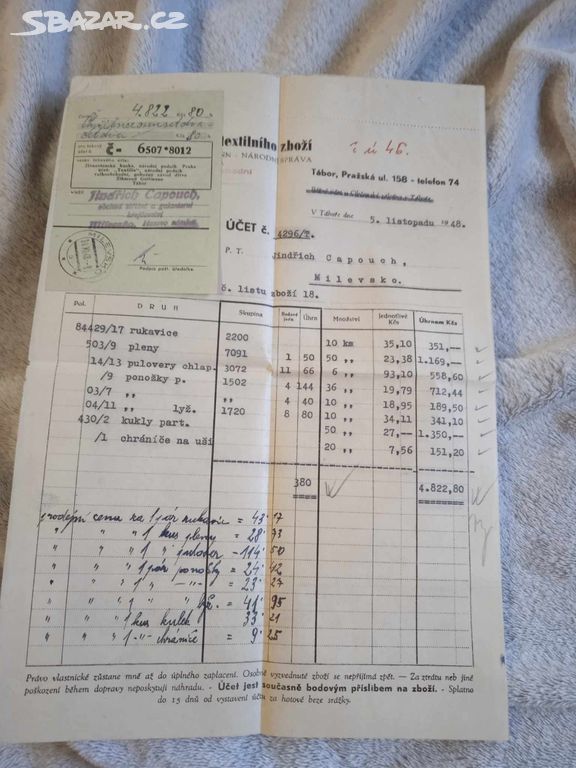 SBAZAR.CZ
4.822 80
80
č- 6507*8012
Živnostenská banka, národní podnik Praha
Tábor
Jindřich Capouch,
MILEVSKO
Podpis pošt. úředníka
textilního zboží
NÁRODNÍ SPRÁVA
Tábor, Pražská ul. 158 - telefon 74
V Táboře dne 5. listopadu 1948.
ÚČET č. 4296/T.
P. T. Jindřich Capouch,
Milevsko.
č. listu zboží 18.
Pol. DRUH Skupina Bodová jedn. Úhrn Množství Jednotlivě Kčs Úhrnem Kčs
84429/17 rukavice 2200 10 km 35,10 351,—
503/9 pleny 7091 1 50 50 ,, 23,38 1.169,—
14/13 pulovery chlap. 3072 11 66 6 ,, 93,10 558,60
/9 ponožky p. 1502 4 144 36 ,, 19,79 712,44
03/7 ,, ,, 4 40 10 ,, 18,95 189,50
04/11 ,, lyž. 1720 8 80 10 ,, 34,11 341,10
430/2 kukly part. 50 ,, 27,— 1.350,—
/1 chrániče na uši 20 ,, 7,56 151,20
380 4.822,80
prodejní cena na 1 pár rukavic = 43·17
" " " 1 kus pleny = 28·73
" " " 1 " pulover - 114·50
" " " 1 pár ponožky = 24·42
" " " 1 " -"- = 23·27
" " " 1 " " lyž. = 41·95
" " " 1 kus kukel = 33·21
" " " 1 -"- chrániče = 9·25
Právo vlastnické zůstane mně až do úplného zaplacení. Osobně vyzvednuté zboží se nepřijímá zpět. — Za ztrátu neb jiné
poškození během dopravy neposkytuji náhradu. - Účet jest současně bodovým příslibem na zboží. - Splatno
do 15 dnů od vystavení účtu za hotové beze srážky.